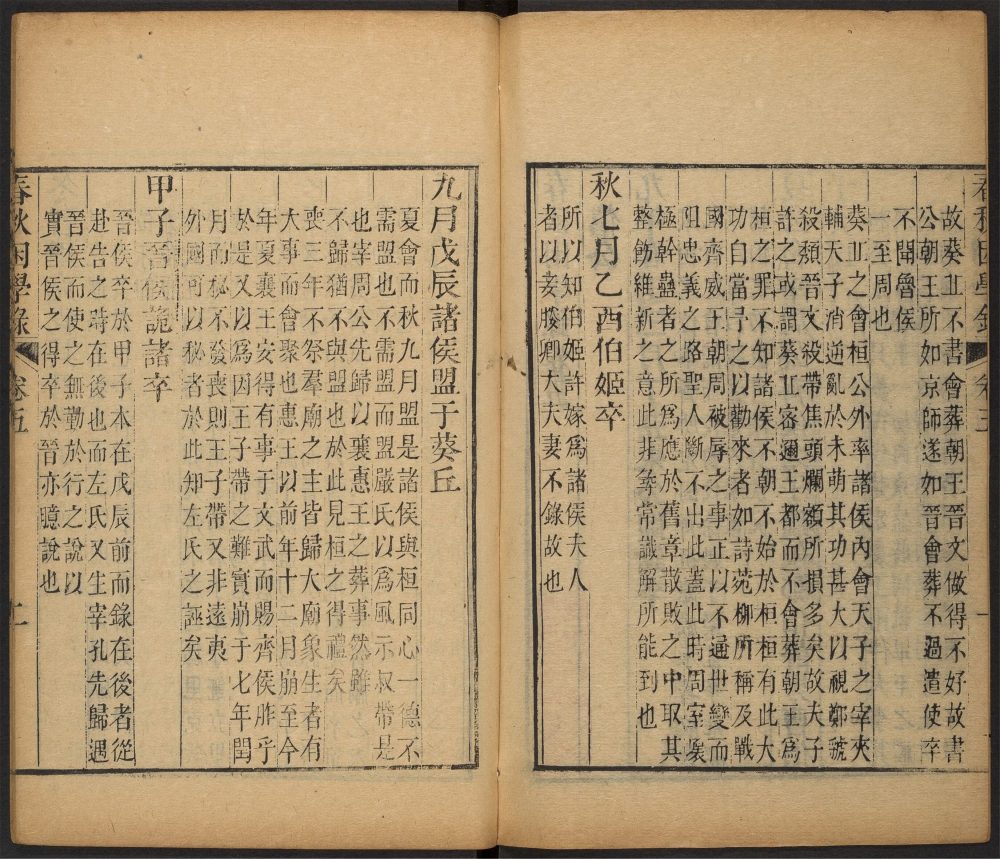 春秋困學錄 卷五 一
故葵丘不書會葬朝王晉文做得不好故書
公朝王所如京師遂如晉會葬不過遣使卒
不聞魯侯
一至周也
葵丘之會桓公外率諸侯內會天子之宰夾
輔天子消逋亂於未萌其功甚大以視鄭虢
殺頹晉文殺帶焦頭爛額所損多矣故夫子
許之或謂葵丘宻邇王都而不會葬朝王為
桓之罪不知諸侯不朝不始於桓桓有此大
功自當予之以勸來者如詩菀柳所稱及戰
國齊威王朝周被辱之事正以不通世變而
阻忠義之路聖人斷不出此蓋此時周室壞
極幹蠱者之所為應於舊章散敗之中取其
整飭維新之意此非尋常識解所能到也
秋七月乙酉伯姬卒
所以知伯姬許嫁為諸侯夫人
者以妾媵卿大夫妻不錄故也
九月戊辰諸侯盟于葵丘
夏會而秋九月盟是諸侯與桓同心一德不
需盟也不需盟而盟嚴氏以為風示叔帶是
也宰周公先歸以襄惠王之葬事然雖
不歸猶不與盟也於此見桓之得禮矣
喪三年不祭羣廟之主皆歸大廟象生者有
大事而會聚也惠王以前年十二月崩至今
年夏襄王安得有事于文武而賜齊侯胙乎
於是又以為因王子帶之難實崩于七年閏
月而秘不發喪則王子帶又非遠夷
外國可以秘者於此知左氏之誣矣
甲子晉侯詭諸卒
晉侯卒於甲子本在戊辰前而錄在後者從
赴告之時在後也而左氏又生宰孔先歸遇
晉侯而使之無勤於行之說以
實晉侯之得卒於晉亦臆說也
春秋困學錄 卷五 二